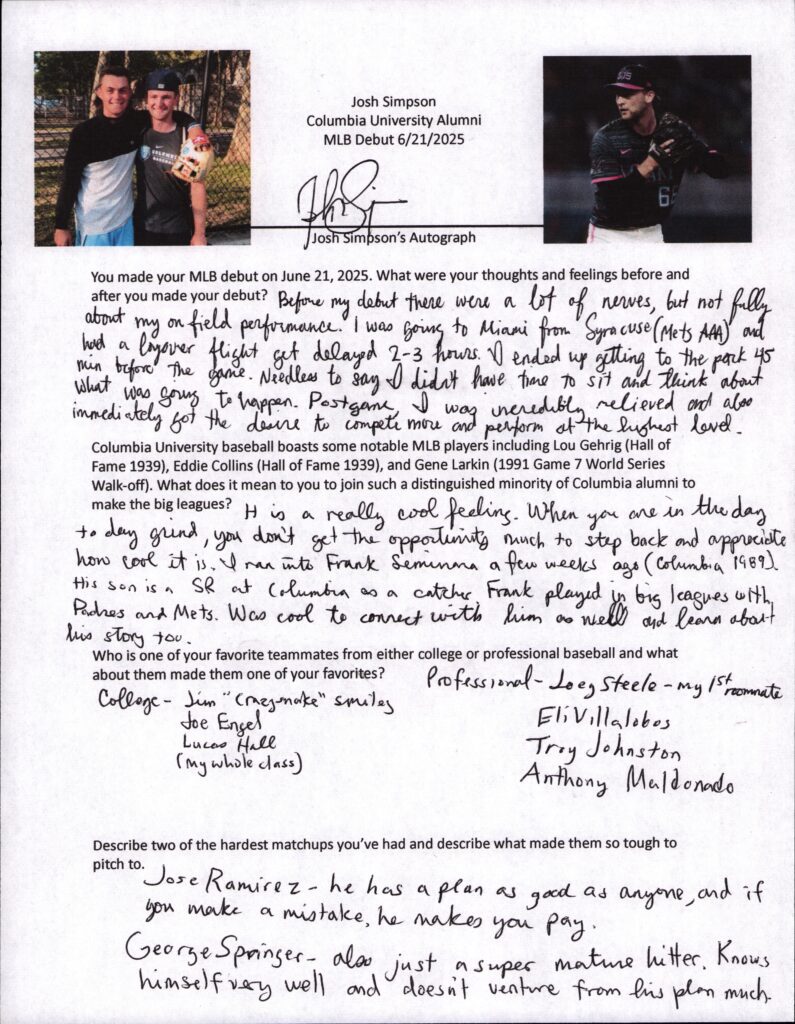 Josh Simpson
Columbia University Alumni
MLB Debut 6/21/2025
Josh Simpson's Autograph
You made your MLB debut on June 21, 2025. What were your thoughts and feelings before and
after you made your debut? Before my debut there were a lot of nerves, but not fully
about my on field performance. I was going to Miami from Syracuse (Mets AAA) and
had a layover flight get delayed 2-3 hours. I ended up getting to the park 45
min before the game. Needless to say I didn't have time to sit and think about
what was going to happen. Postgame, I was incredibly relieved and also
immediately got the desire to compete more and perform at the highest level.
Columbia University baseball boasts some notable MLB players including Lou Gehrig (Hall of
Fame 1939), Eddie Collins (Hall of Fame 1939), and Gene Larkin (1991 Game 7 World Series
Walk-off). What does it mean to you to join such a distinguished minority of Columbia alumni to
make the big leagues? It is a really cool feeling. When you are in the day
to day grind, you don't get the opportunity much to step back and appreciate
how cool it is. I ran into Frank Seminara a few weeks ago (Columbia 1989).
His son is a SR at Columbia as a catcher. Frank played in big leagues with
Padres and Mets. Was cool to connect with him as well and learn about
his story too.
Who is one of your favorite teammates from either college or professional baseball and what
about them made them one of your favorites?
College - Jim "Crazy-make" smiley
Joe Engel
Lucas Hall
(my whole class)
Professional - Joey Steele - my 1st roommate
Eli Villalobos
Troy Johnston
Anthony Maldonado
Describe two of the hardest matchups you've had and describe what made them so tough to
pitch to.
Jose Ramirez - he has a plan as good as anyone, and if
you make a mistake, he makes you pay.
George Springer - also just a super mature hitter. Knows
himself very well and doesn't venture from his plan much.